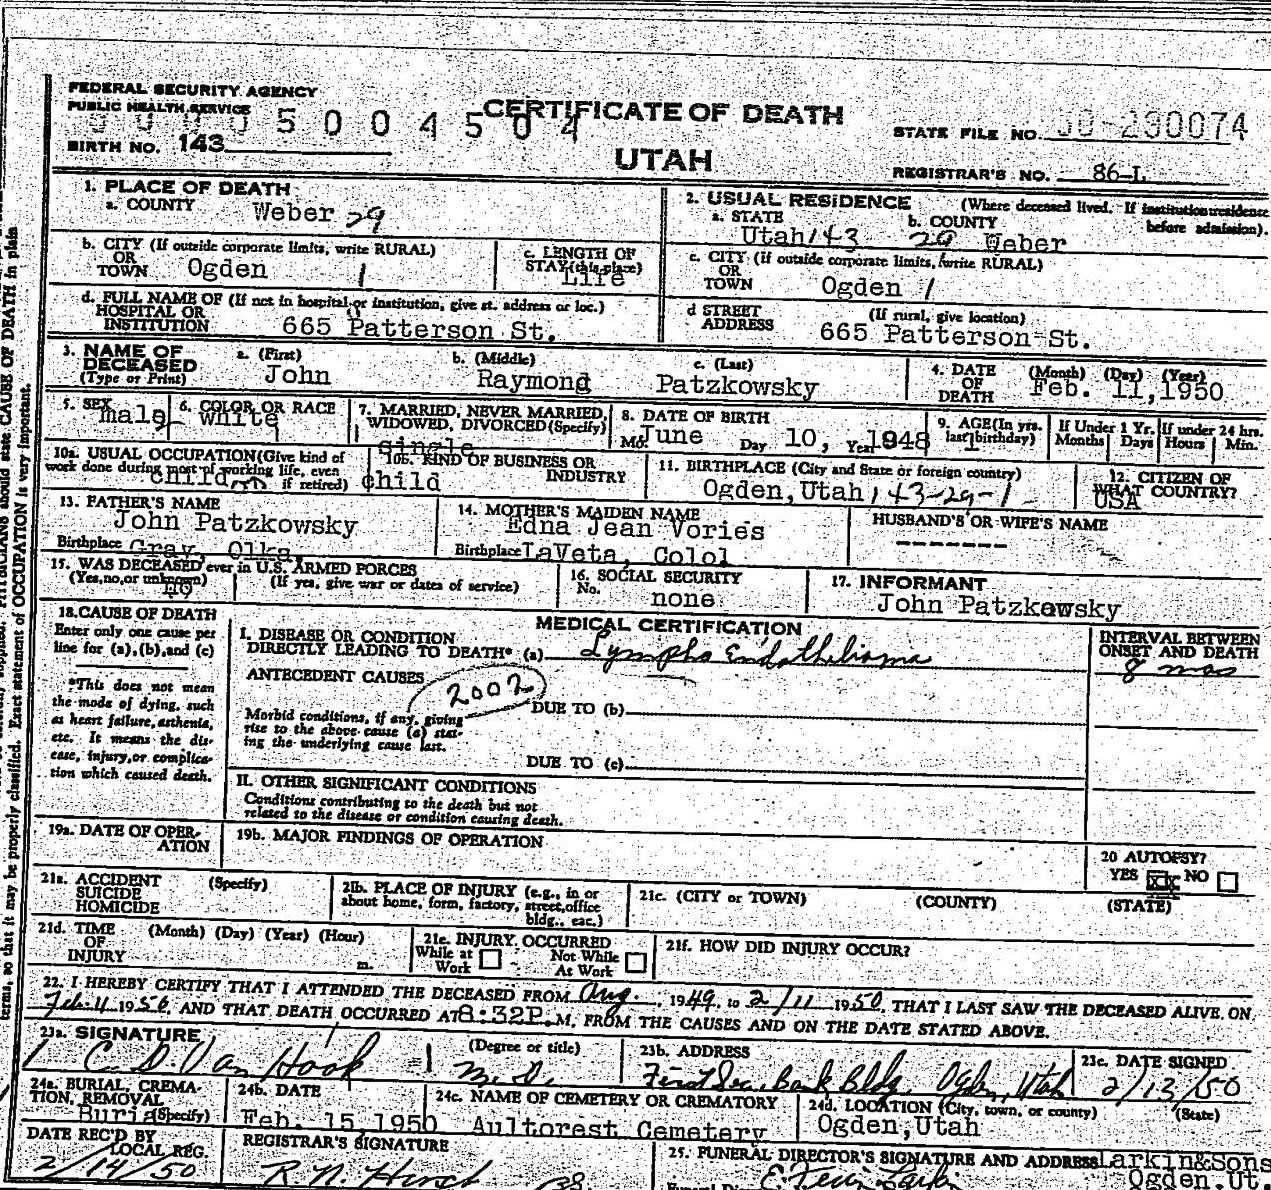 FEDERAL SECURITY AGENCY
PUBLIC HEALTH SERVICE
5004504
CERTIFICATE OF DEATH
STATE FILE NO. 50-290074
BIRTH NO. 143
UTAH
REGISTRAR'S NO. 86-L
1. PLACE OF DEATH
a. COUNTY Weber 29
2. USUAL RESIDENCE (Where deceased lived. If institution: residence before admission).
a. STATE Utah 143 b. COUNTY 29 Weber
b. CITY (If outside corporate limits, write RURAL) OR TOWN Ogden 1
c. LENGTH OF STAY (this place) Life
c. CITY (If outside corporate limits, write RURAL) OR TOWN Ogden 1
d. FULL NAME OF (If not in hospital or institution, give st. address or loc.) HOSPITAL OR INSTITUTION 665 Patterson St.
d STREET ADDRESS (If rural, give location) 665 Patterson St.
3. NAME OF DECEASED (Type or Print)
a. (First) John
b. (Middle) Raymond
c. (Last) Patzkowsky
4. DATE OF DEATH (Month) (Day) (Year) Feb. 11, 1950
5. SEX male
6. COLOR OR RACE white
7. MARRIED, NEVER MARRIED, WIDOWED, DIVORCED (Specify) single
8. DATE OF BIRTH Mo. June Day 10, Year 1948
9. AGE (In yrs. last birthday) 1
If Under 1 Yr. Months Days
If under 24 hrs. Hours Min.
10a. USUAL OCCUPATION (Give kind of work done during most of working life, even if retired) child
10b. KIND OF BUSINESS OR INDUSTRY child
11. BIRTHPLACE (City and State or foreign country) Ogden, Utah 143-29-1
12. CITIZEN OF WHAT COUNTRY? USA
13. FATHER'S NAME John Patzkowsky
Birthplace Gray, Olka.
14. MOTHER'S MAIDEN NAME Edna Jean Vories
Birthplace LaVeta, Colol
HUSBAND'S OR WIFE'S NAME -------
15. WAS DECEASED ever in U.S. ARMED FORCES
(Yes, no, or unknown) no (If yes, give war or dates of service)
16. SOCIAL SECURITY No. none
17. INFORMANT John Patzkowsky
18. CAUSE OF DEATH
Enter only one cause per line for (a), (b), and (c)
*This does not mean the mode of dying, such as heart failure, asthenia, etc. It means the disease, injury, or complication which caused death.
MEDICAL CERTIFICATION
I. DISEASE OR CONDITION DIRECTLY LEADING TO DEATH* (a) Lympho Endothelioma
INTERVAL BETWEEN ONSET AND DEATH
8 mos
ANTECEDENT CAUSES 2002
Morbid conditions, if any, giving rise to the above cause (a) stating the underlying cause last.
DUE TO (b)
DUE TO (c)
II. OTHER SIGNIFICANT CONDITIONS
Conditions contributing to the death but not related to the disease or condition causing death.
19a. DATE OF OPERATION
19b. MAJOR FINDINGS OF OPERATION
20 AUTOPSY?
YES XX NO
21a. ACCIDENT SUICIDE HOMICIDE (Specify)
21b. PLACE OF INJURY (e.g., in or about home, form, factory, street, office bldg., eac.)
21c. (CITY or TOWN) (COUNTY) (STATE)
21d. TIME OF INJURY (Month) (Day) (Year) (Hour) m.
21e. INJURY OCCURRED While at Work Not While At Work
21f. HOW DID INJURY OCCUR?
22. I HEREBY CERTIFY THAT I ATTENDED THE DECEASED FROM Aug. 1949, to 2/11 1950, THAT I LAST SAW THE DECEASED ALIVE ON
Feb. 11 1950, AND THAT DEATH OCCURRED AT 8:32P.M. FROM THE CAUSES AND ON THE DATE STATED ABOVE.
23a. SIGNATURE C. D. Van Hook (Degree or title) M.D.
23b. ADDRESS First Sec. Bank Bldg. Ogden, Utah
23c. DATE SIGNED 2/13/50
24a. BURIAL, CREMATION, REMOVAL (Specify) Burial
24b. DATE Feb. 15, 1950
24c. NAME OF CEMETERY OR CREMATORY Aultorest Cemetery
24d. LOCATION (City, town, or county) (State) Ogden, Utah
DATE REC'D BY LOCAL REG. 2/14/50
REGISTRAR'S SIGNATURE
25. FUNERAL DIRECTOR'S SIGNATURE AND ADDRESS Larkin&Sons
Ogden, Ut.